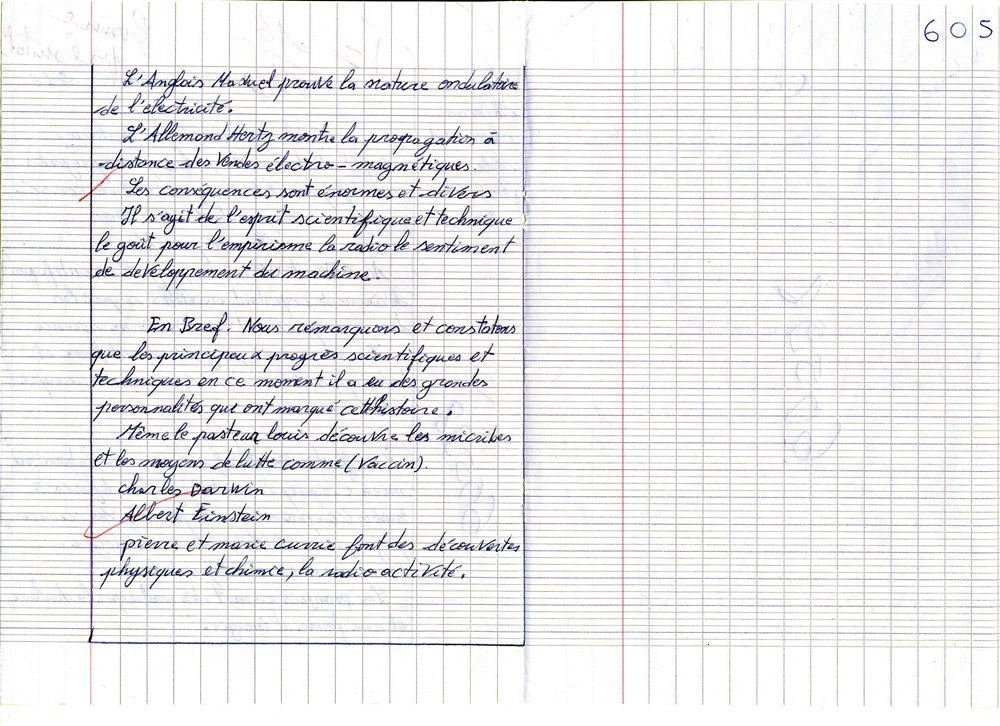 605
L'Anglais Maxuel prouve la nature ondulatoire
de l'électricité.
L'Allemand Hertz montre la propagation à
distance des Vendes électro-magnétiques.
Les conséquences sont énormes et divers
Il s'agit de l'esprit scientifique et technique
le goût pour l'empirisme la radio le sentiment
de developpement du machine.
En Bref. Nous rémarquons et constatons
que les principeaux progrès scientifiques et
techniques en ce moment il a eu des grandes
personnalités qui ont marqué cetthistoire.
Même le pasteur louis découvre les micribes
et les moyens de lutte comme (Vaccin).
charles Darwin
Albert Einstein
pierre et marie currie font des découvertes
physiques et chimie, la radio activité.